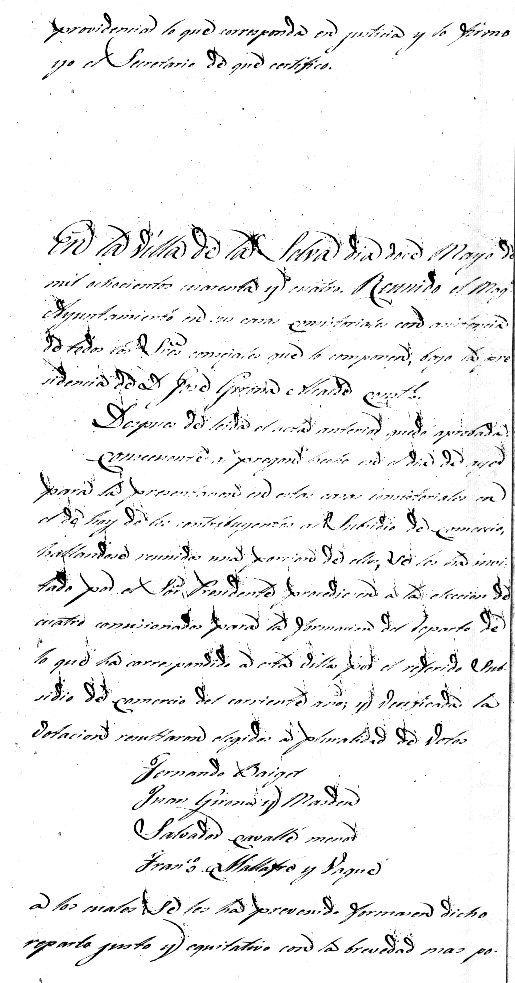 providencia lo que corresponda en justicia y lo firmo
yo el Secretario de que certifico.
En la Villa de la Selva dia doce Mayo de
mil ochocientos cuarenta y cuatro. Reunido el Mag.
Ayuntamiento en su casas consistoriales con asistencia
de todos los Sres consejales que lo componen, bajo la pre
sidencia de D. José Girona Alcalde
Despues de leida el acta anterior quedo aprobada
Consecuente a pregon hecho en el dia de ayer
para la presentacion en estas casas consistoriales en
el de hoy de los contribuyentes al Subsidio de comercio,
hallandose reunidos una porcion de ellos, se les ha invi
tado por el Sor. Presidente procediesen a la eleccion de
cuatro comisionados para la formacion del reparto de
lo que ha correspondido a esta villa por el referido Sub
sidio de comercio del corriente año; y verificada la
votacion resultaron elegidos a pluralidad de votos
Fernando Baiget
Juan Girona y Masdeu
Salvador Cavallé menor
Franco. Mallafré y Vaqué
a los cuales se les ha prevenido formasen dicho
reparto justo y equitativo con la brevedad mas po-